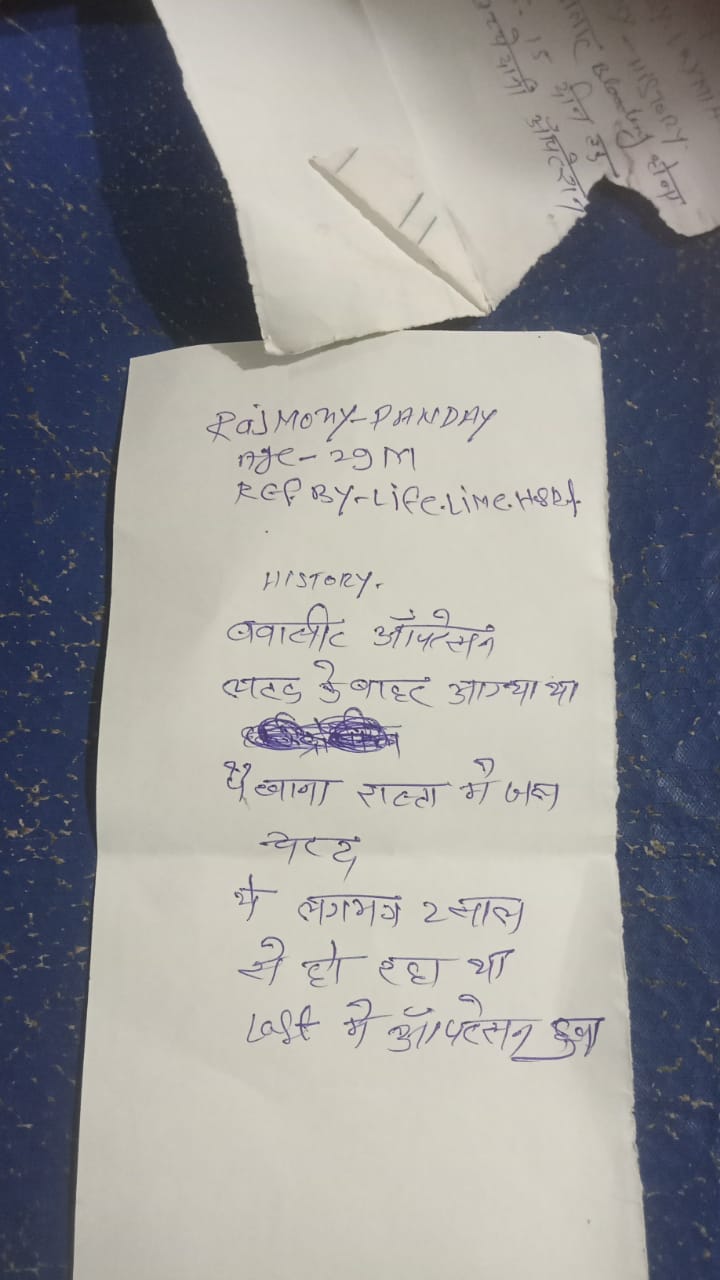 HISTORY
Bleeding होना
15 दीन हुइ
ऑपरेशन
RajMONY-PANDAY
Age-29 M
REF BY-LIFE.LINE.HSPt
HISTORY.
बवासीर ऑपरेसन
के बाहर आग्या था
पैखाना रास्ता मे जख्म
ये लगभग 2 साल
से हो रहा था
Last मे ऑपरेसन हुवा